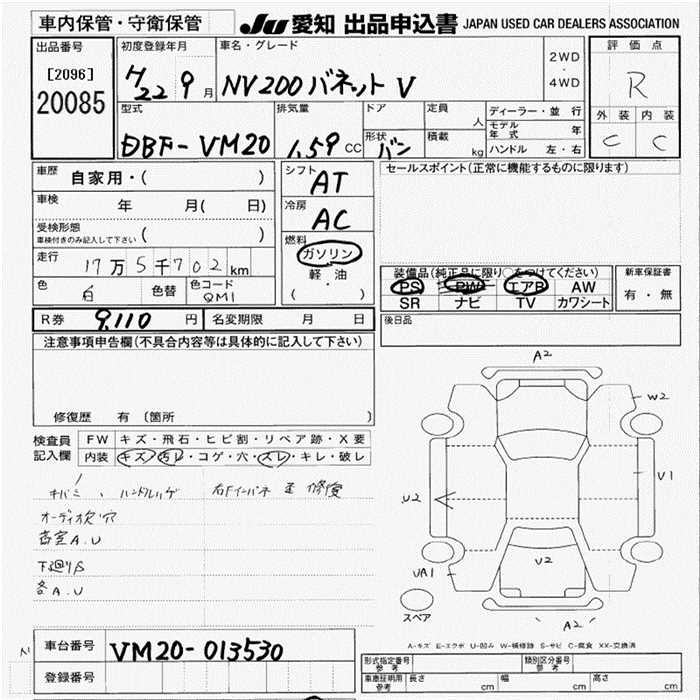 車内保管・守衛保管
JU 愛知 出品申込書 JAPAN USED CAR DEALERS ASSOCIATION
出品番号
[2096]
20085
初度登録年月
H22 9月
車名・グレード
NV200 バネット V
2WD
・
4WD
評価点
R
外装 内装
C C
型式
DBF-VM20
排気量
1.59 CC
ドア
形状
バン
定員
人
積載
kg
ディーラー・並行
モデル年式 年
ハンドル 左・右
車歴
自家用・( )
車検
年 月( 日)
受検形態
車検付きのみ記入して下さい ( )
走行
17万5千702km
色
白
色替
色コード
QM1
シフト
AT
冷房
AC
燃料
ガソリン
軽・油
( )
セールスポイント(正常に機能するものに限ります)
装備品(純正品に限り○をつけてください)
PS PW エアB AW
SR ナビ TV カワシート
新車保証書
有・無
R券 9,110 円
名変期限 月 日
後日品
注意事項申告欄(不具合内容等は具体的に記入して下さい)
修復歴 有 〔箇所 〕
検査員
記入欄
FW キズ・飛石・ヒビ割・リペア跡・X要
内装 キズ・汚レ・コゲ・穴・スレ・キレ・破レ
キバミ、ハンドルハゲ
右Fインパネ 歪 修復
オーディオ欠 穴
荷室A.U
下廻りS
各A.U
A2
W2
V1
U2
UA1
V2
A2
スペア
A-キズ E-エクボ U-凹み W-補修跡 S-サビ C-腐食 XX-交換済
車台番号 VM20-013530
登録番号
形式指定番号
参考
類別区分番号
参考
車庫証明用
参考
長さ cm 幅 cm 高さ cm